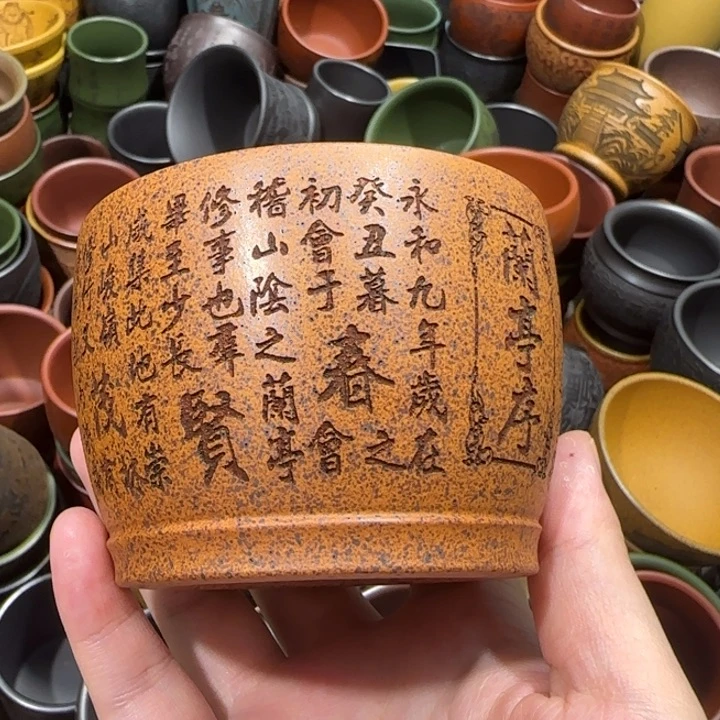 蘭亭序
永和九年歲在
癸丑暮春之
初會于會
稽山陰之蘭亭
修事也羣賢
畢至少長
咸集此地有崇
山峻嶺茂林
竹又